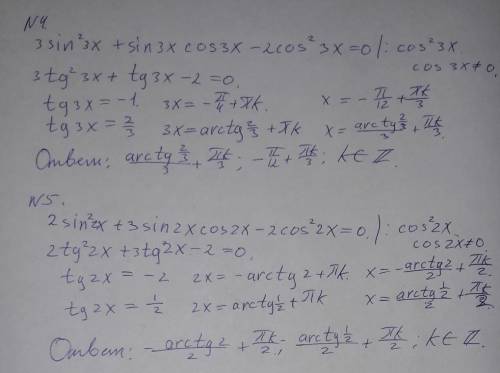 N4.
3sin²3x + sin3x cos3x - 2cos²3x = 0 /: cos²3x
cos3x≠0.
3tg²3x + tg3x - 2 = 0.
tg3x = -1. 3x = -π/4 + πk. x = -π/12 + πk/3
tg3x = 2/3 3x = arctg 2/3 + πk x = arctg 2/3 / 3 + πk/3.
Ответ: arctg 2/3 / 3 + πk/3; -π/12 + πk/3; k∈Z.
N5.
2sin²2x + 3sin2x cos2x - 2cos²2x = 0. /: cos²2x
cos2x≠0.
2tg²2x + 3tg2x - 2 = 0.
tg2x = -2 2x = -arctg2 + πk. x = -arctg2/2 + πk/2
tg2x = 1/2 2x = arctg 1/2 + πk x = arctg 1/2 / 2 + πk/2.
Ответ: -arctg2/2 + πk/2; arctg 1/2 / 2 + πk/2; k∈Z.